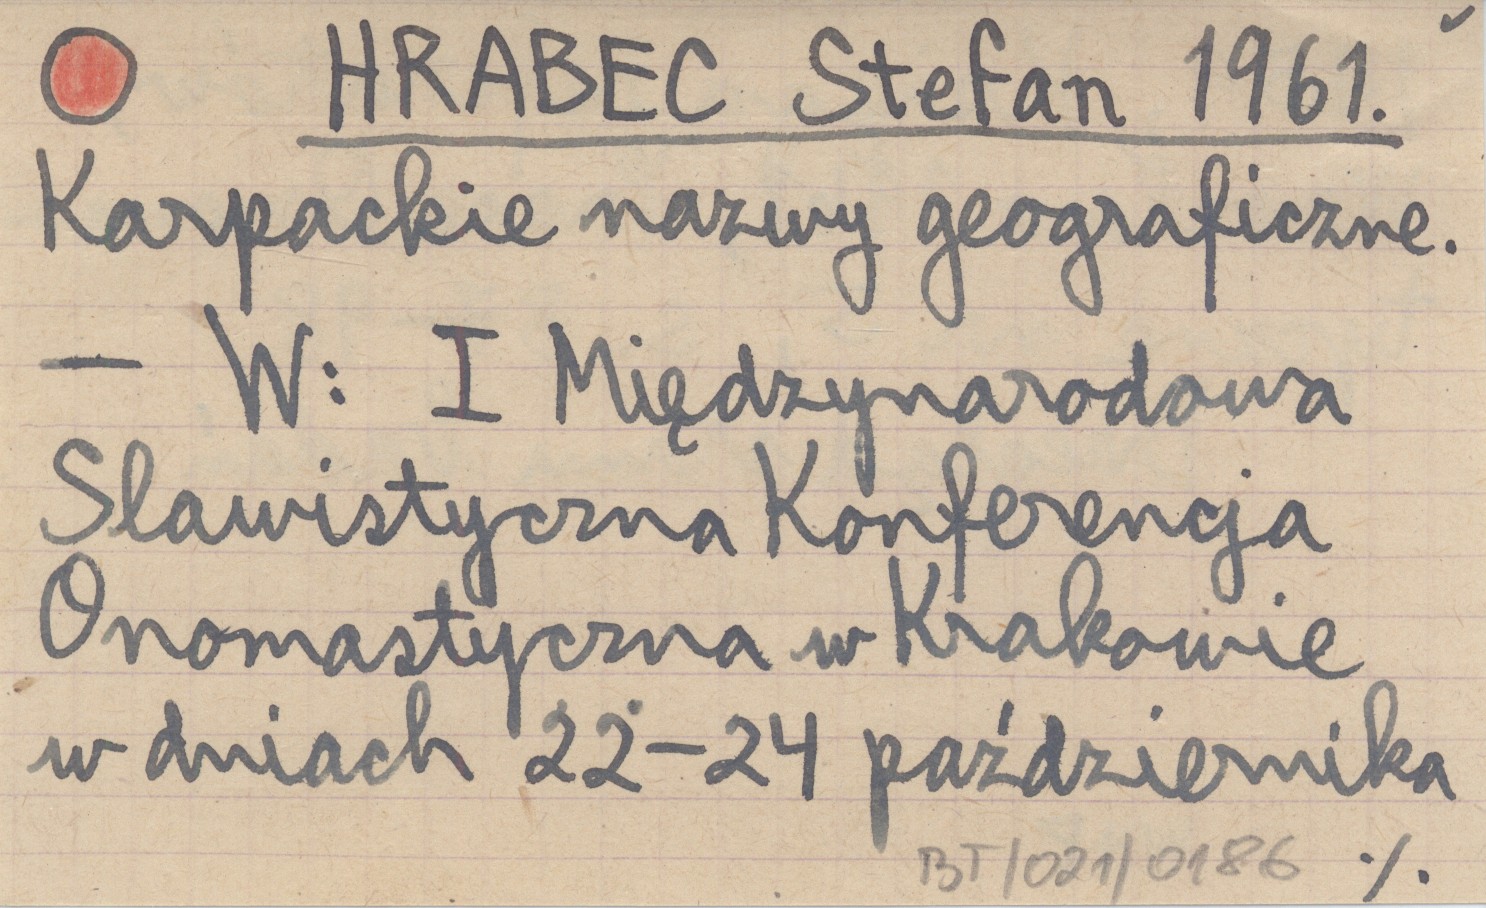 HRABEC Stefan 1961.
Karpackie nazwy geograficzne.
— W: I Międzynarodowa
Slawistyczna Konferencja
Onomastyczna w Krakowie
w dniach 22–24 października
BT/021/0186 ./.